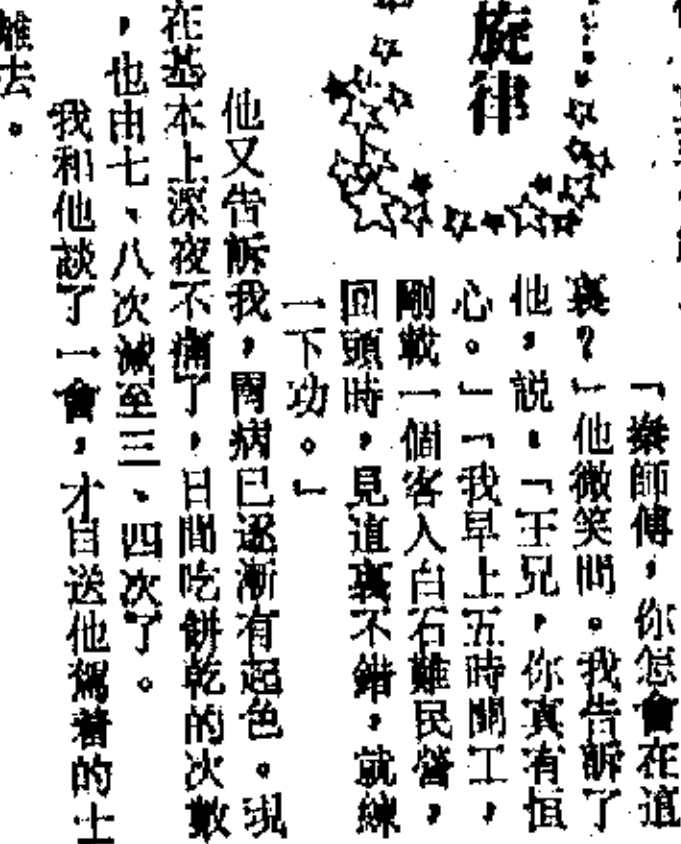 旋律
「秦師傅，你怎會在這
裏？」他微笑問。我告訴了
他，說：「王兄，你真有恒
心。」「我早上五時開工，
剛載一個客人白石難民營，
回頭時，見這裏不錯，就練
一下功。」
他又告訴我，胃病已逐漸有起色。現
在基本上深夜不痛了，日間吃餅乾的次數
，也由七、八次減至三、四次了。
我和他談了一會，才目送他駕着的士
離去。